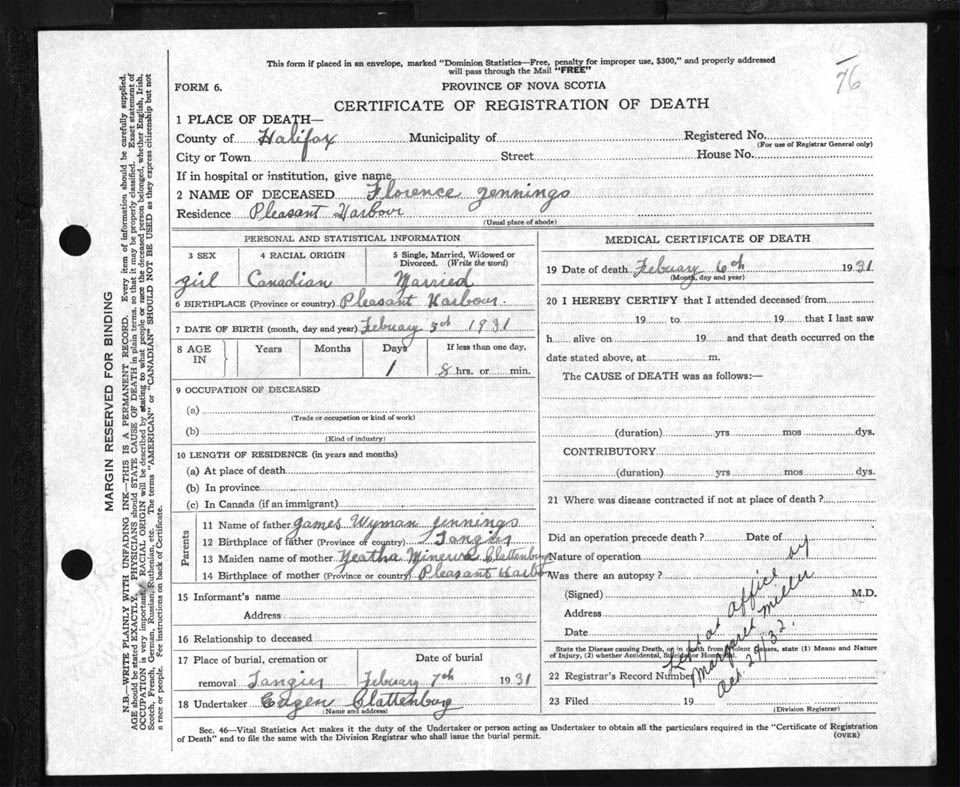 This form if placed in an envelope, marked "Dominion Statistics—Free, penalty for improper use, $300," and properly addressed
will pass through the Mail "FREE"
76
FORM 6.
PROVINCE OF NOVA SCOTIA
CERTIFICATE OF REGISTRATION OF DEATH
1 PLACE OF DEATH—
County of Halifax Municipality of Registered No.
(For use of Registrar General only)
City or Town Street House No.
If in hospital or institution, give name
2 NAME OF DECEASED Florence Jennings
Residence Pleasant Harbour
(Usual place of abode)
PERSONAL AND STATISTICAL INFORMATION
3 SEX 4 RACIAL ORIGIN 5 Single, Married, Widowed or
Divorced. (Write the word)
girl Canadian Married
6 BIRTHPLACE (Province or country) Pleasant Harbour.
7 DATE OF BIRTH (month, day and year) Febuary 5th 1931
8 AGE IN Years Months Days If less than one day,
1 8 hrs. or min.
9 OCCUPATION OF DECEASED
(a)
(Trade or occupation or kind of work)
(b)
(Kind of industry)
10 LENGTH OF RESIDENCE (in years and months)
(a) At place of death
(b) In province
(c) In Canada (if an immigrant)
Parents
11 Name of father James Wyman Jennings
12 Birthplace of father (Province of country) Tangier
13 Maiden name of mother Yeatha Minerva Clattenburg
14 Birthplace of mother (Province or country) Pleasant Harbor
15 Informant's name
Address
16 Relationship to deceased
17 Place of burial, cremation or Date of burial
removal Tangier Febuary 7th 1931
18 Undertaker Eugen Clattenburg
(Name and address)
MEDICAL CERTIFICATE OF DEATH
19 Date of death Febuary 6th 1931
(Month, day and year)
20 I HEREBY CERTIFY that I attended deceased from
19 to 19 that I last saw
h alive on 19 and that death occurred on the
date stated above, at m.
The CAUSE of DEATH was as follows:—
(duration) yrs mos dys.
CONTRIBUTORY
(duration) yrs mos dys.
21 Where was disease contracted if not at place of death?
Did an operation precede death? Date of
Nature of operation
Was there an autopsy?
(Signed) M.D.
Address
Date
State the Disease causing Death, or in death from Violent Causes, state (1) Means and Nature
of Injury, (2) whether Accidental, Suicidal or Homicidal.
22 Registrar's Record Number
23 Filed 19
(Division Registrar)
at office by
Margaret Miller
Oct 29/32.
Sec. 46—Vital Statistics Act makes it the duty of the Undertaker or person acting as Undertaker to obtain all the particulars required in the "Certificate of Registration
of Death" and to file the same with the Division Registrar who shall issue the burial permit.
(OVER)
MARGIN RESERVED FOR BINDING
N.B.—WRITE PLAINLY WITH UNFADING INK—THIS IS A PERMANENT RECORD. Every item of information should be carefully supplied.
AGE should be stated EXACTLY. PHYSICIANS should STATE CAUSE OF DEATH in plain terms, so that it may be properly classified. Exact statement of
OCCUPATION is very important. RACIAL ORIGIN will be described by stating to what people or race the deceased person belonged, whether English, Irish,
Scotch, French, German, Russian, Ruthenian, etc. The terms "AMERICAN" or "CANADIAN" SHOULD NOT BE USED as they express citizenship but not
a race or people. See instructions on back of Certificate.